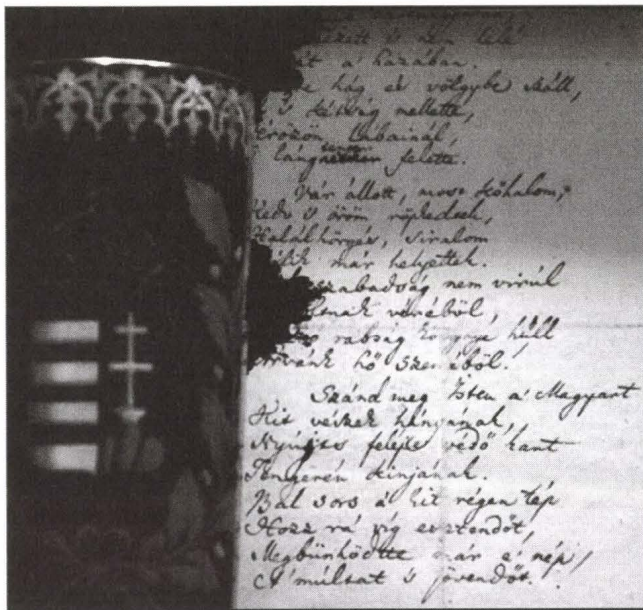 s nem lelé
a' hazában.
hág és völgybe száll,
s kétség mellette,
lábainál,
lángtenger felette.
Vár állott, most kőhalom,
Kedv s öröm röpkedtek,
Halálhörgés, siralom
már helyettek.
szabadság nem virúl
véréből,
rabság könnye hull
hő szeméből.
Szánd meg Isten a' Magyart
Kit vészek hányának,
Nyújts feléje védő kart
Tengerén kínjának.
Bal sors a' kit régen tép
Hozz rá víg esztendőt,
Megbünhödte már e' nép
A' múltat s jövendőt.